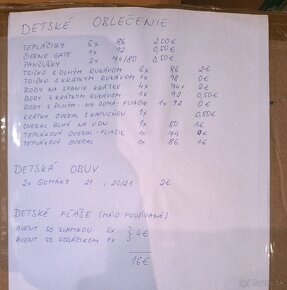 DETSKÉ OBLEČENIE
TEPLÁČIKY 5x 86 2,00€
ČIERNE GATE 1x 92 0,50€
PANČUŠKY 2x 74/80 0,50€
TRIČKO S DLHÝM RUKÁVOM 6x 86 2€
TRIČKO S KRÁTKYM RUKÁVOM 1x 98 0€
BODY NA SPANIE KRÁTKE 4x 94 2€
BODY S KRÁTKYM RUKÁVOM 1x 92 0,50€
BODY S DLHÝM - NA DOMA FĽAČIK 1x 92 0€
KRÁTKY OVERAL S KAPUCŇOU 1x 0,50€
OVERAL DLHÝ NA VON 1x 80 1€
TEPLÁKOVÝ OVERAL - FĽAČIK 1x 74 0€
TEPLÁKOVÝ OVERAL 1x 86 1€
DETSKÁ OBUV
2x GUMÁKY 21 ; 20/21 2€
DETSKÉ FĽAŠE (MÁLO POUŽÍVANÉ)
AVENT SO SLAMKOU 3x } 4€
AVENT SO 1x
16€
bazos.sk